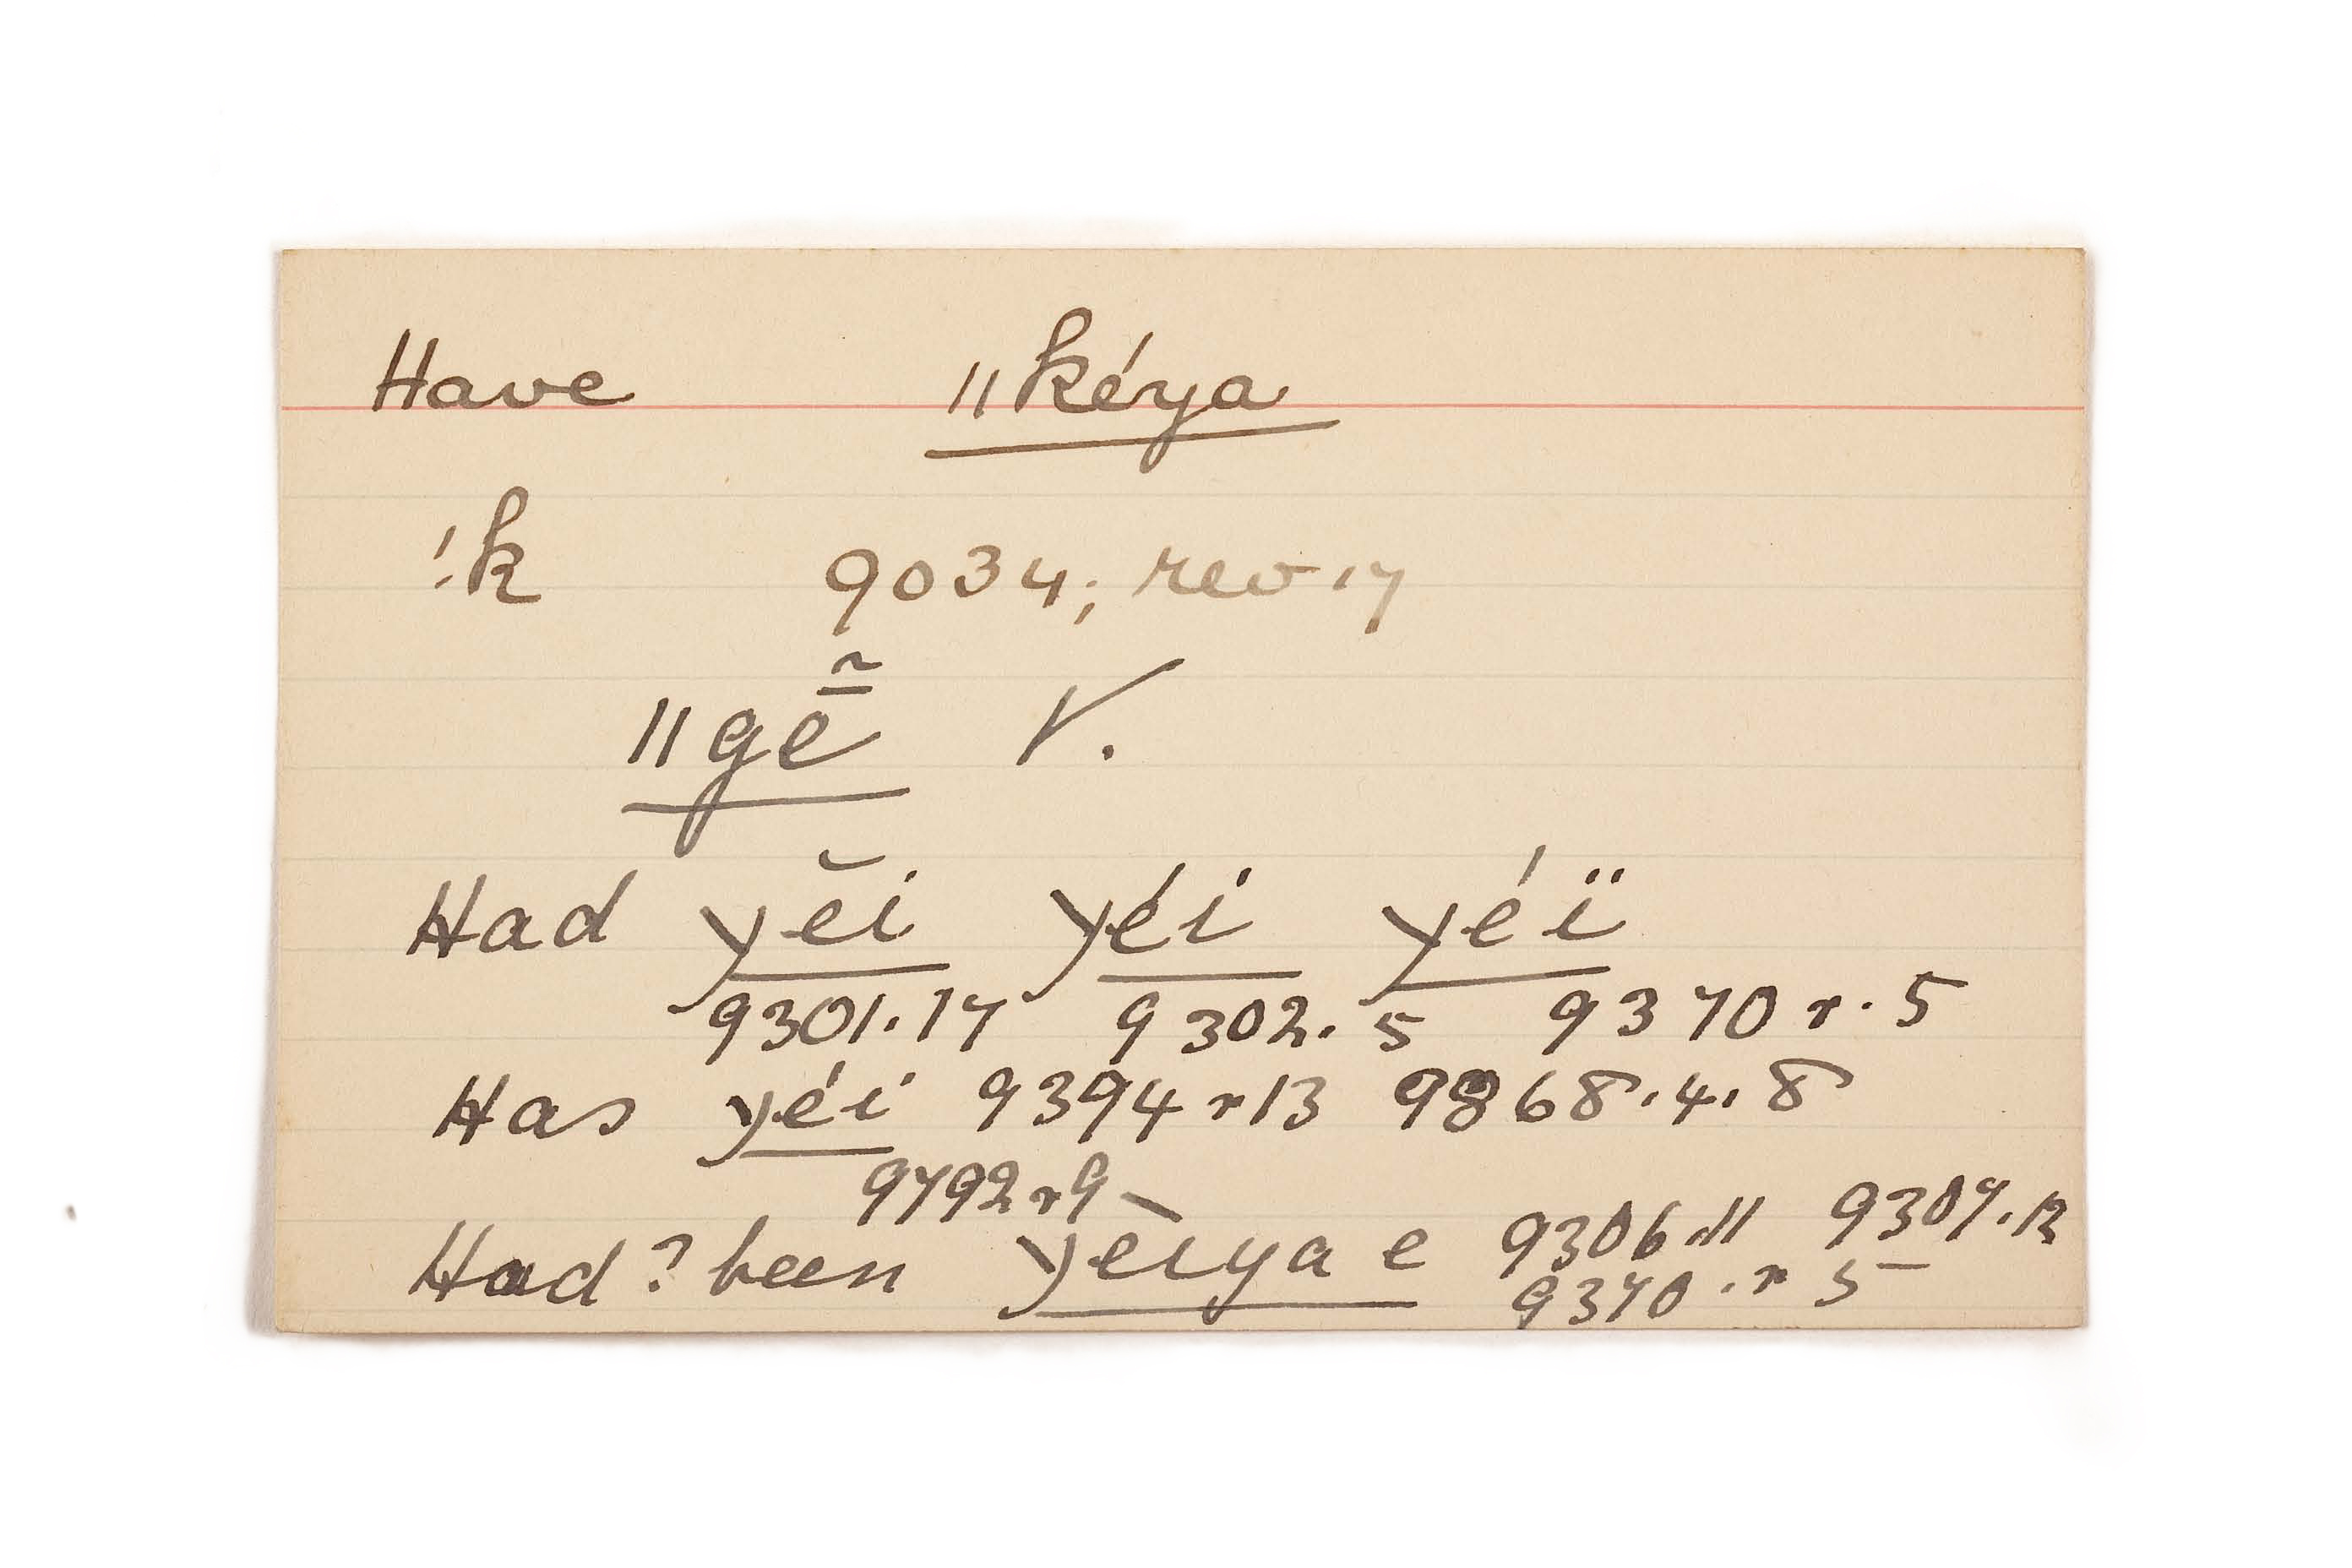 Have ǁkéya
!k 9034; rev 17
ǁgē̃ V.
Had yĕi yéi yéï
9301.17 9302.5 9370 r.5
Has yéi 9394 r 13 9868.4.8
9792 r 9
Had ? been yeiya e 9306.11 9307.12
9370.r 5